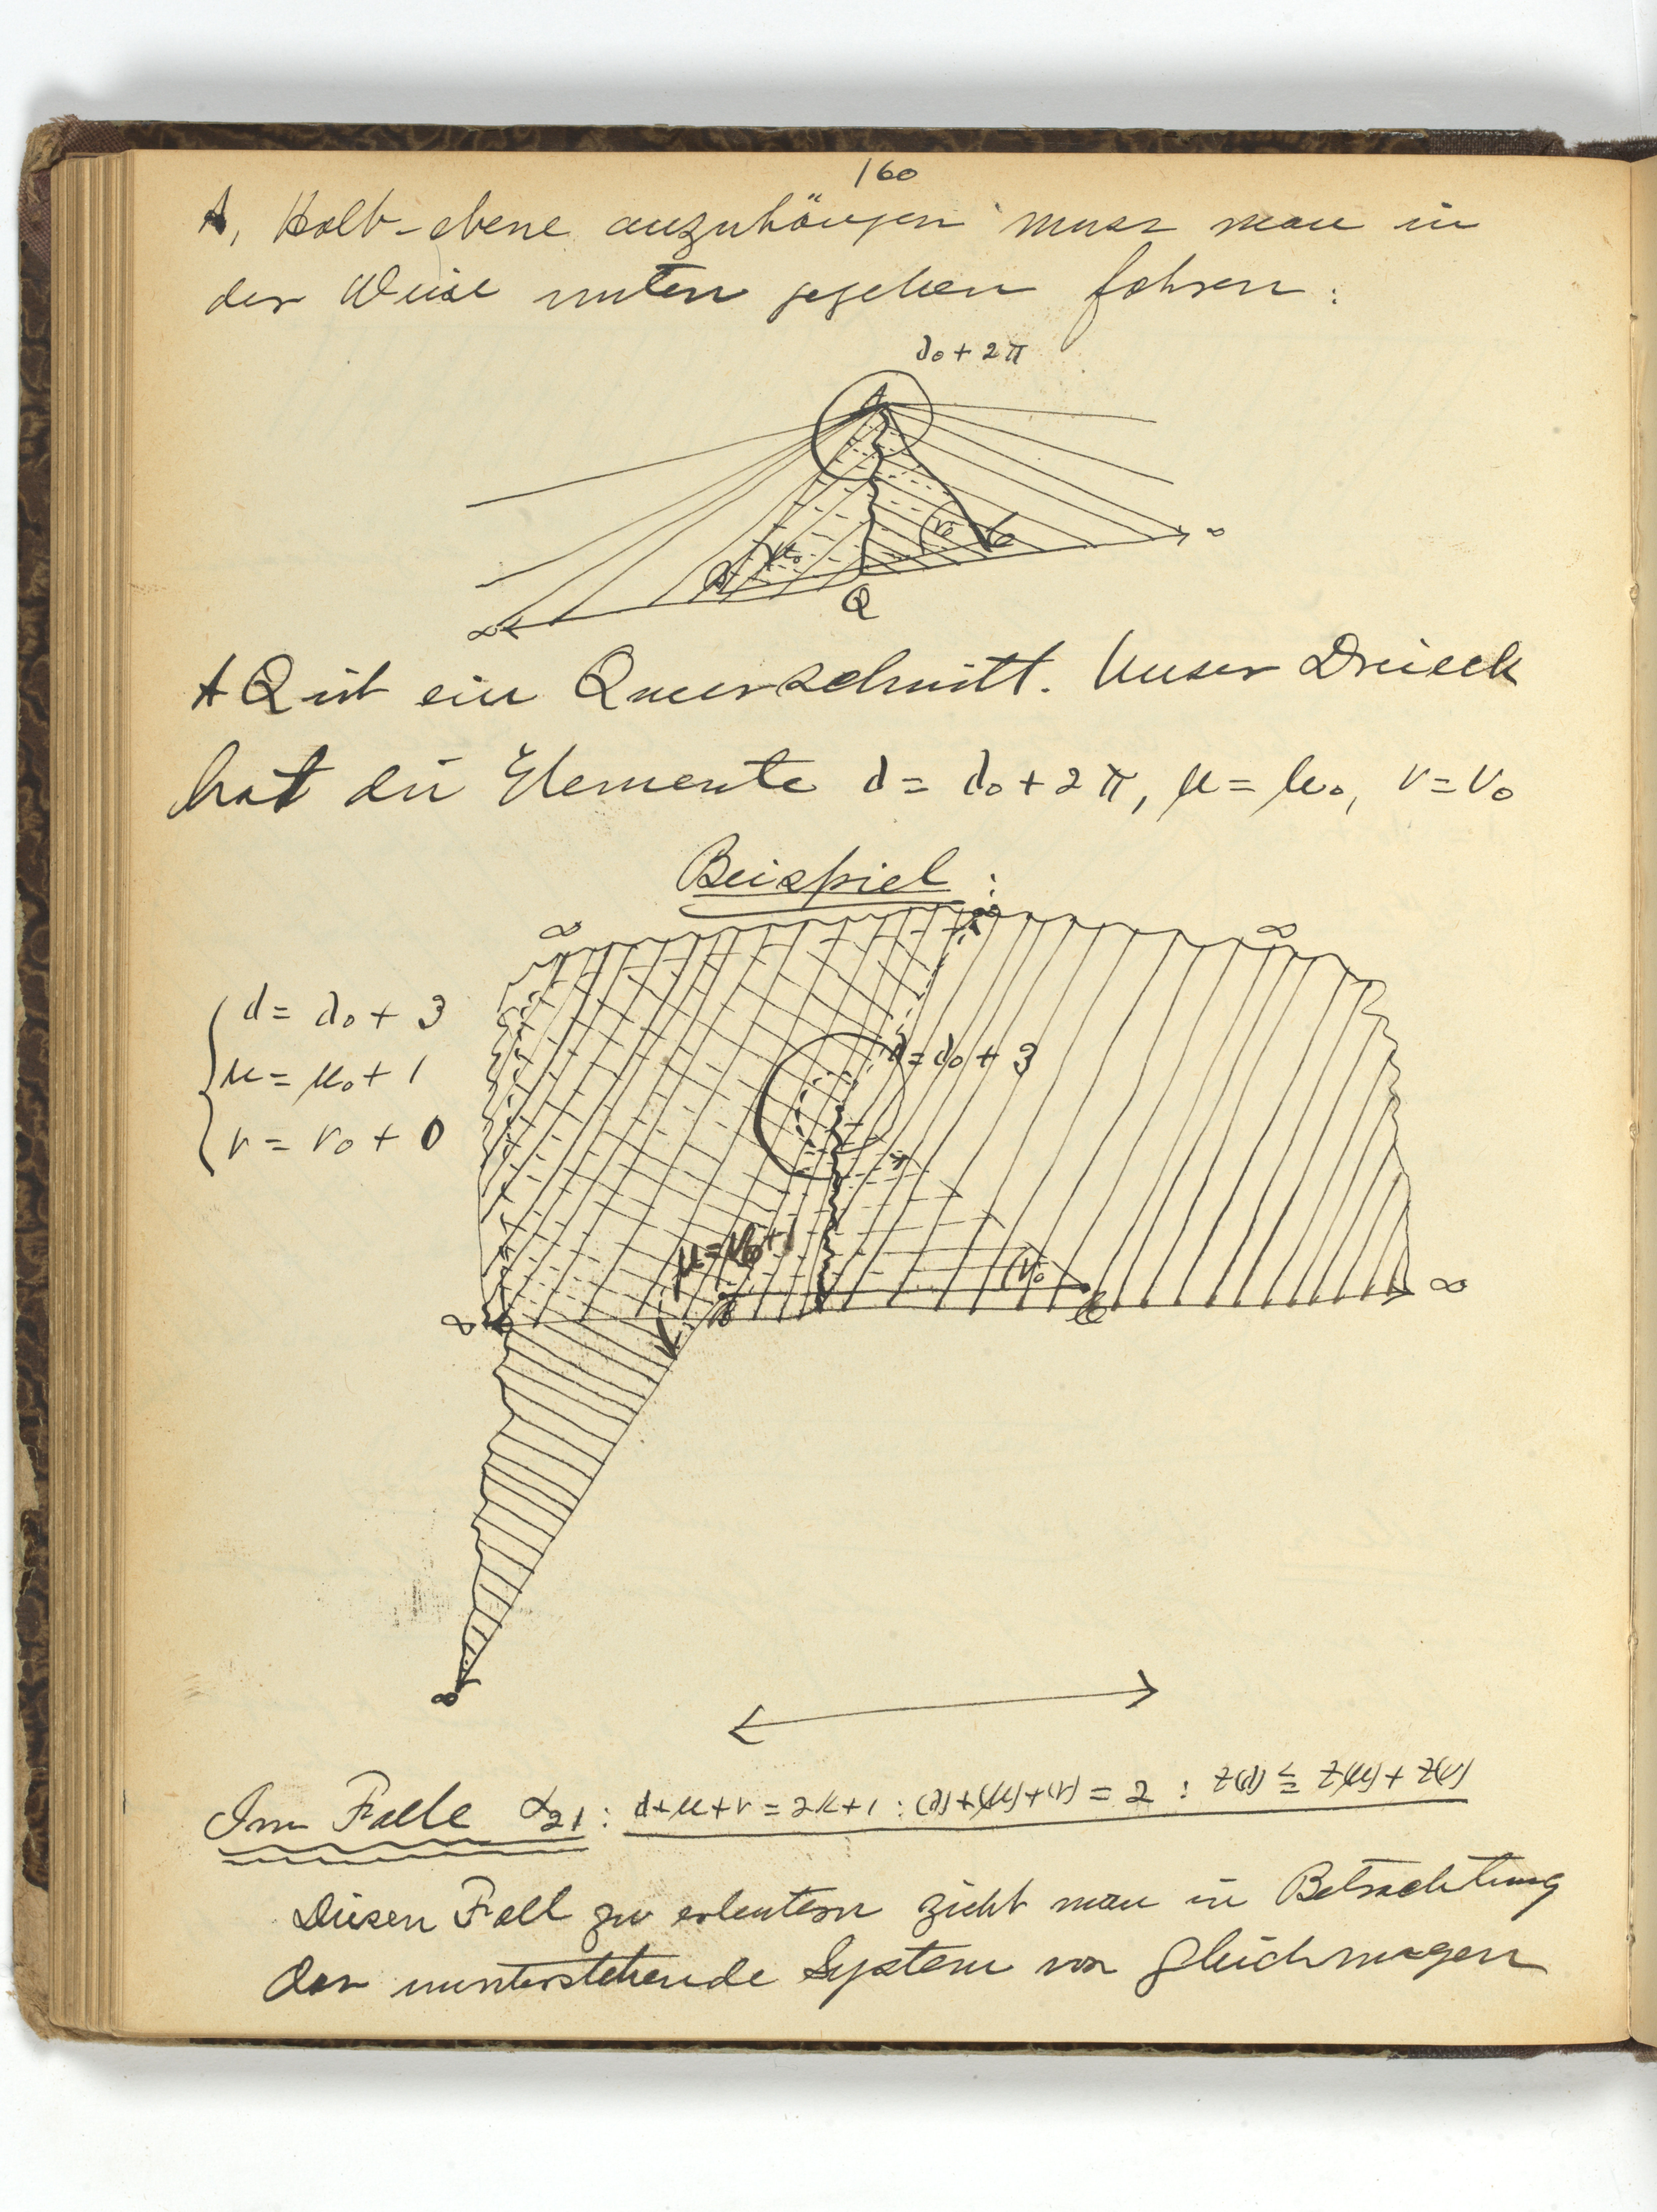 160
A, Halb-ebene anzuhängen muss man in
der Weise unten gegeben fahren:
λ₀ + 2π
A
μ₀
ν₀
B
C
Q
∞
∞
AQ ist ein Querschnitt. Unser Dreieck
hat die Elemente λ = λ₀ + 2π, μ = μ₀, ν = ν₀
Beispiel:
∞
∞
∞
λ = λ₀ + 3
μ = μ₀ + 1
ν = ν₀ + 0
λ = λ₀ + 3
μ = μ₀ + 1
ν₀
∞
B
C
∞
∞
Im Falle α₂₁: λ+μ+ν = 2k+1 : (λ)+(μ)+(ν) = 2 : Z(λ) ≦ Z(μ) + Z(ν)
Diesen Fall zu erleutern zieht man in Betrachtung
der unterstehende System von Gleichungen